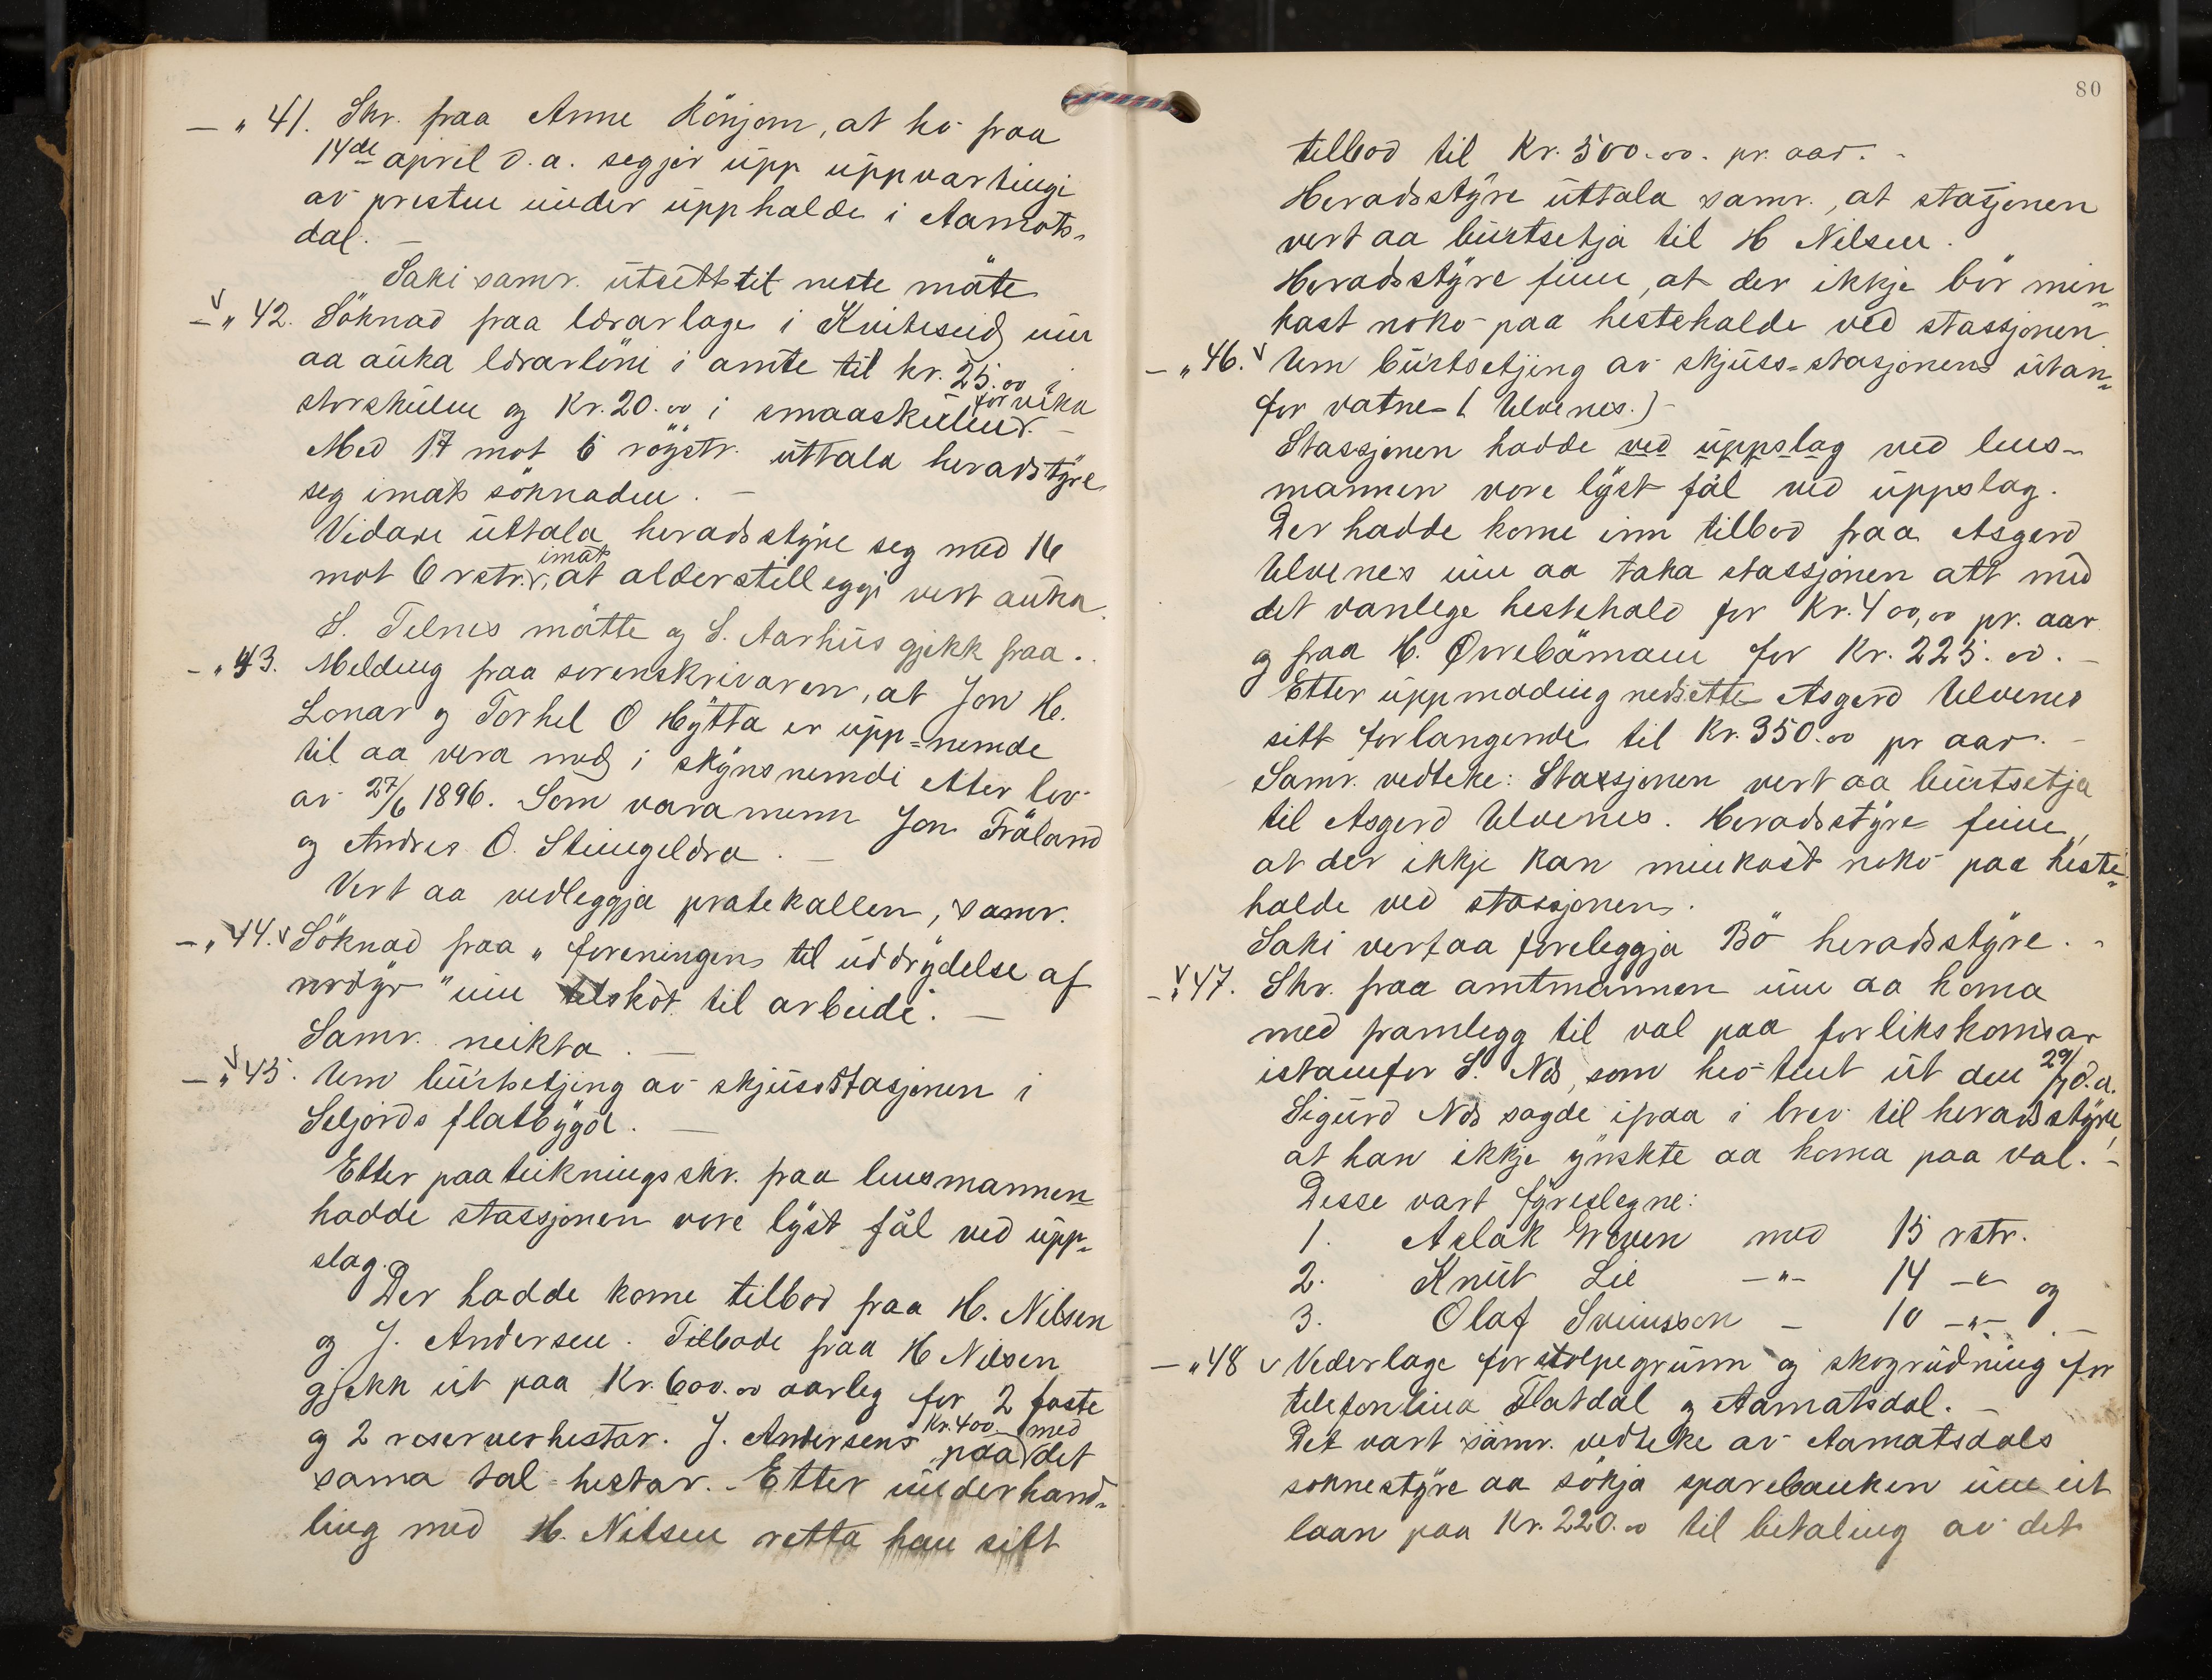 — " 41. Skr. fraa Anne Rönjom, at ho fraa
14de april d.a. segjer upp uppvartingi
av presten under upphalde i Aamots-
dal. —
Saki samr. utsett til neste möte
— " 42. Söknad fraa lærarlage i Kviteseid um
aa auka lærarlöni i amte til kr. 25.00 i
storskulen og Kr. 20.00 i smaaskulen for vika —
Med 17 mot 6 röystr. uttala heradstyre
seg imot söknaden. —
Vidare uttala heradsstyre seg med 16
mot 6 rstr. imot, at alderstilleggi vert auka.
S. Telnes mötte og S. Aarhus gjekk fraa.
— " 43. Melding fraa sorenskrivaren, at Jon H.
Lonar og Torkel O Hytta er upp=nemde
til aa vera med i skynsnemdi etter lov
av 27/6 1896. Som varamenn Jon Tröland
og Andres O. Steingeldra. —
Vert aa vedleggja protekallen, samr.
— " 44. Söknad fraa "foreningen til uddrydelse af
rovdyr" um tilskot til arbeide. —
Samr. neikta. —
— " 45. Um burtsetjing av skjusstasjonen i
Seljords flatbygd. —
Etter paateikningsskr. fraa lensmannen
hadde stassjonen vore lyst fäl ved upp-
slag.
Der hadde kome tilbod fraa H. Nilsen
og J. Andersen. Tilbode fraa H Nilsen
gjekk ut paa Kr. 600.00 aarleg for 2 faste
og 2 reserverhestar. J. Andersens paa Kr. 400 med det
sama tal hestar. - Etter underhand-
ling med H. Nilsen retta han sitt
80
tilbod til Kr. 500.00. pr. aar. -
Heradsstyre uttala samr., at stasjonen
vert aa burtsetja til H Nilsen.
Heradsstyre finn, at der ikkje bör min-
kast noko paa hestehalde ved stassjonen.
— " 46. Um burtsetjing av skjuss=stasjonen utan-
for vatne (Ulvenes.) -
Stassjonen hadde ved uppslag ved lens-
mannen vore lyst fäl ved uppslag.
Der hadde kome inn tilbod fraa Asgerd
Ulvenes um aa taka stassjonen att med
det vanlege hestehald for Kr. 400,00 pr. aar
og fraa H. Överbömoen for Kr. 225.00. —
Etter uppmoding nedsette Asgerd Ulvenes
sitt forlangende til Kr. 350.00 pr aar. —
Samr. vedteke: Stassjonen vert aa burtsetja
til Asgerd Ulvenes. Heradsstyre finn,
at der ikkje kan minkast noko paa heste-
halde ved stassjonen.
Saki vert aa foreleggja Bö heradsstyre. -
— " 47. Skr. fraa amtmannen um aa koma
med framlegg til val paa forlikskomsar
istaenfor S. Nes, som hev tent ut den 29/7 d.a.
Sigurd Nes sagde ifraa i brev til heradsstyre,
at han ikkje ynskte aa koma paa val. -
Desse vart fyreslegne:
1. Aslak Groven med 15 rstr.
2. Knut Lie —"— 14 —"— og
3. Olaf Sveinsson — 10 —"— . —
— " 48 Vederlage for stolpegrunn og skogrudning for
telefonlina Flatdal og Aamotsdal. —
Det vart samr. vedteke av Aamotsdals
soknestyre aa sökja sparebanken um eit
laan paa Kr. 220.00 til betaling av det